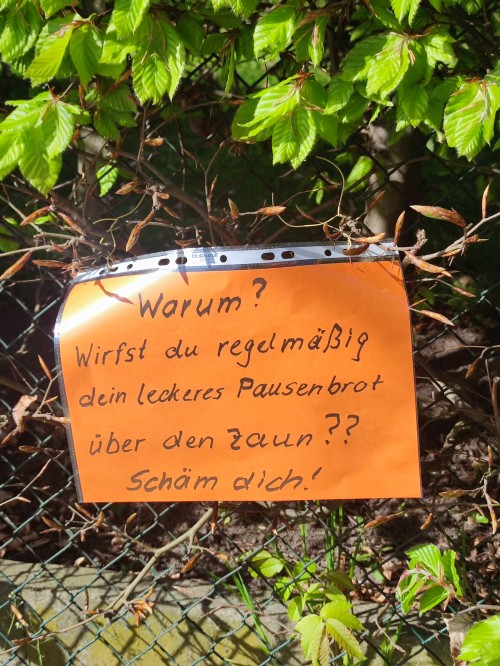 Warum?
Wirfst du regelmäßig
dein leckeres Pausenbrot
über den Zaun??
Schäm dich!